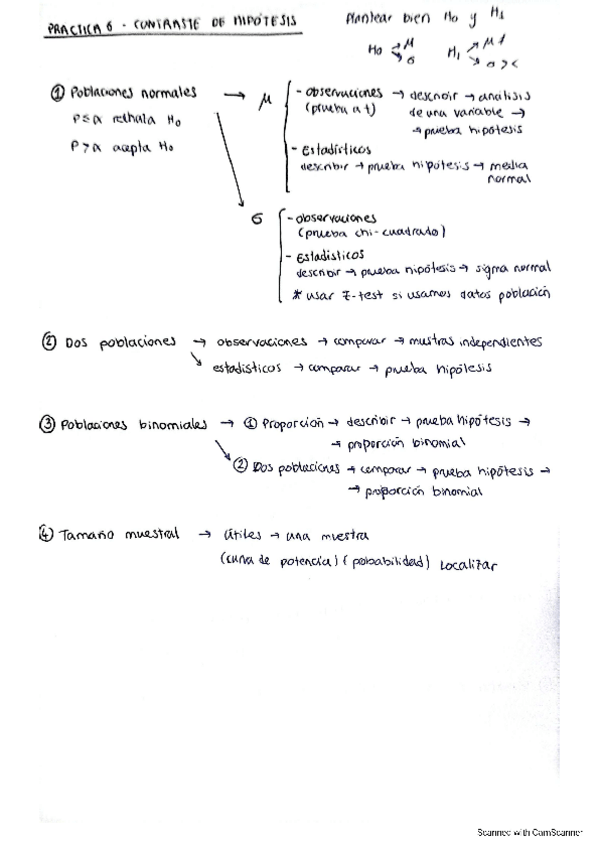 PRACTICA 6 - CONTRASTE DE HIPÓTESIS
Plantear bien H0 y H1
H0 → μ → σ
H1 → μ ≠ → σ > <
① Poblaciones normales → μ
P ≤ α rechaza H0
P > α acepta H0
- observaciones → describir → análisis
(prueba a t) de una variable →
→ prueba hipótesis
- Estadísticos
describir → prueba hipótesis → media
normal
σ
- observaciones
(prueba chi-cuadrado)
- Estadísticos
describir → prueba hipótesis → sigma normal
* usar Z-test si usamos datos población
② Dos poblaciones → observaciones → comparar → mustras independientes
→ estadísticos → comparar → prueba hipótesis
③ Poblaciones binomiales → ① Proporción → describir → prueba hipótesis →
→ proporción binomial
② Dos poblaciones → comparar → prueba hipótesis →
→ proporción binomial
④ Tamaño muestral → útiles → una muestra
(curva de potencia) (probabilidad) Localizar
Scanned with CamScanner